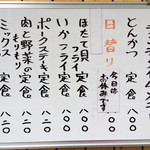 とんかつ 定食 八〇〇
日替り 今日は お休みです
ほたて貝 定食 八〇〇
いかフライ 定食 八〇〇
ポークステーキ 定食 八二〇
肉と野菜の もりもり 定食 八二〇
ミックス 定食 八二〇